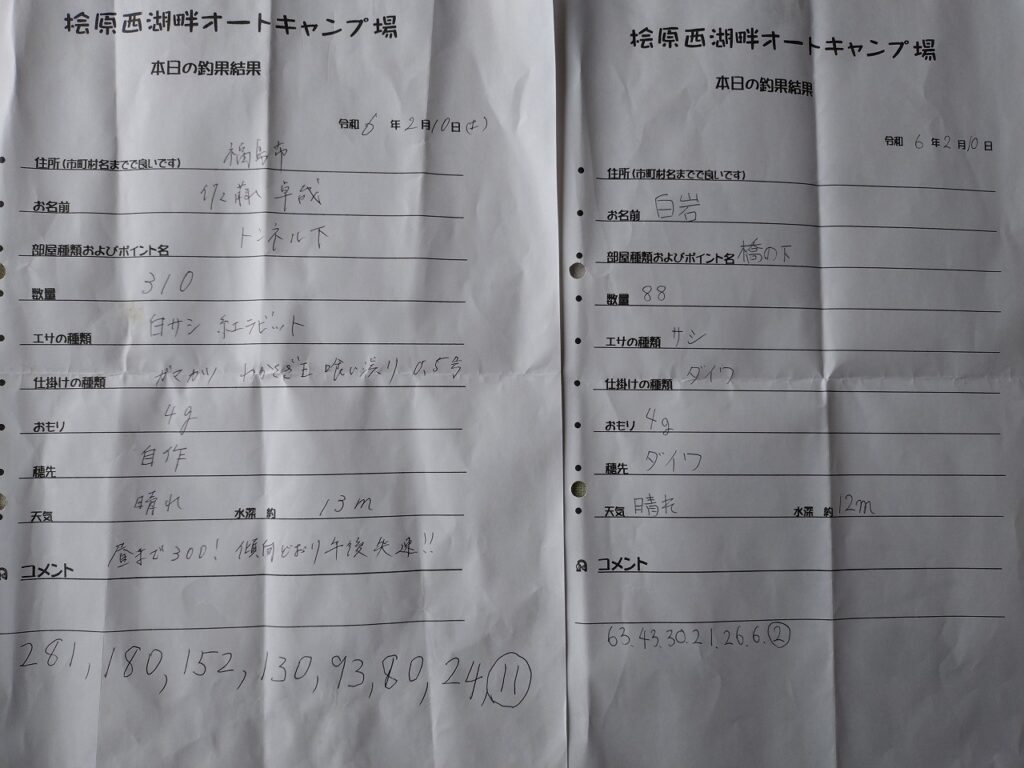 桧原西湖畔オートキャンプ場
本日の釣果結果
令和 6 年 2月10日(土)
住所(市町村名までで良いです) 福島市
お名前 佐藤 卓哉
部屋種類およびポイント名 トンネル下
数量 310
エサの種類 白サシ 紅ラビット
仕掛けの種類 ガマカツ わかさぎ王 喰い渋り 0.5号
おもり 4g
穂先 自作
天気 晴れ 水深 約 13m
コメント 昼まで300! 傾向どおり午後失速!!
281, 180, 152, 130, 93, 80, 24, ⑪
桧原西湖畔オートキャンプ場
本日の釣果結果
令和 6 年 2月10日
住所(市町村名までで良いです)
お名前 白岩
部屋種類およびポイント名 橋の下
数量 88
エサの種類 サシ
仕掛けの種類 ダイワ
おもり 4g
穂先 ダイワ
天気 晴れ 水深 約 12m
コメント
63.43.30.21.26.6.②